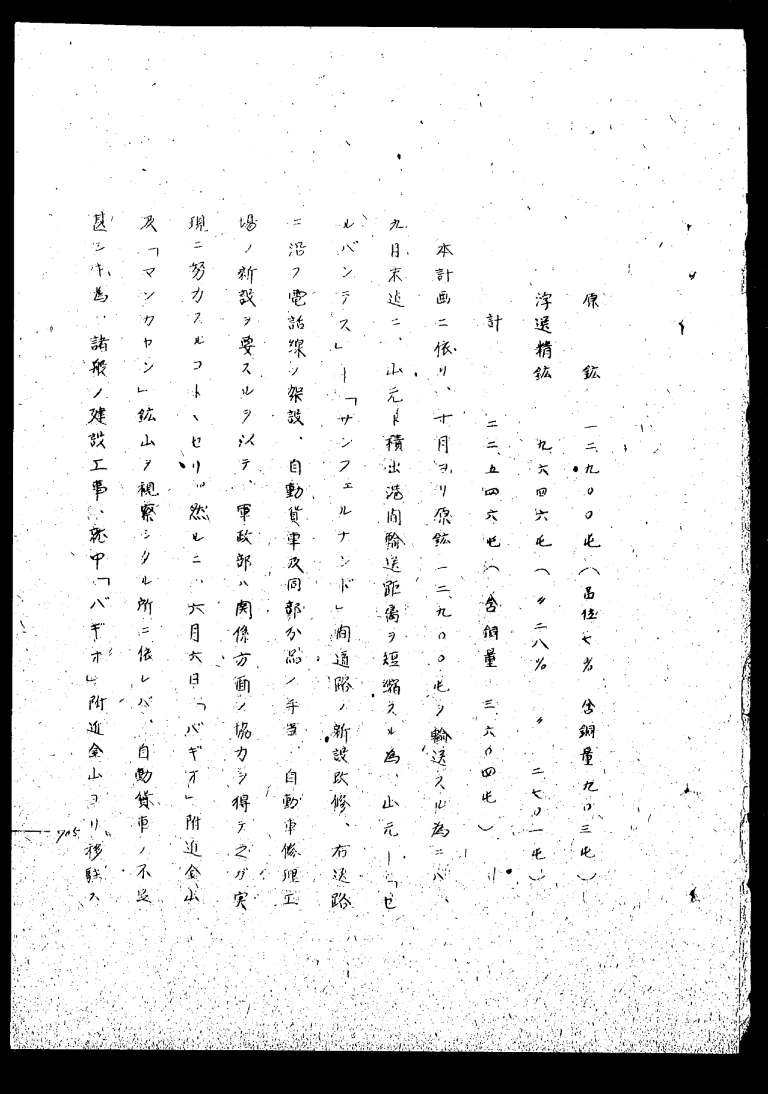 原鉱 一二、九〇〇屯(品位七% 含銅量九〇三屯)
浮遊精鉱 九、六四六屯(〃二八% 〃 二七〇一屯)
計 二二、五四六屯(含銅量 三、六〇四屯)
本計画ニ依リ、十月ヨリ原鉱一二、九〇〇屯ヲ輸送スル為ニハ、
九月末迄ニ、山元ト積出港間輸送距離ヲ短縮スル為、山元―「セ
ルバンテス」―「サンフェルナンド」間道路ノ新設改修、右送路
ニ沿フ電話線ノ架設、自動貨車及同部分品ノ手当、自動車修理工
場ノ新設ヲ要スルヲ以テ、軍政部ハ関係方面ノ協力ヲ得テ之ガ実
現ニ努力スルコトヽセリ。然ルニ、六月六日「バギオ」附近金山
及「マンカヤン」鉱山ヲ視察シタル所ニ依レバ、自動貨車ノ不足
甚シキ為、諸般ノ建設工事、就中「バギオ」附近金山ヨリ移駐ス
705